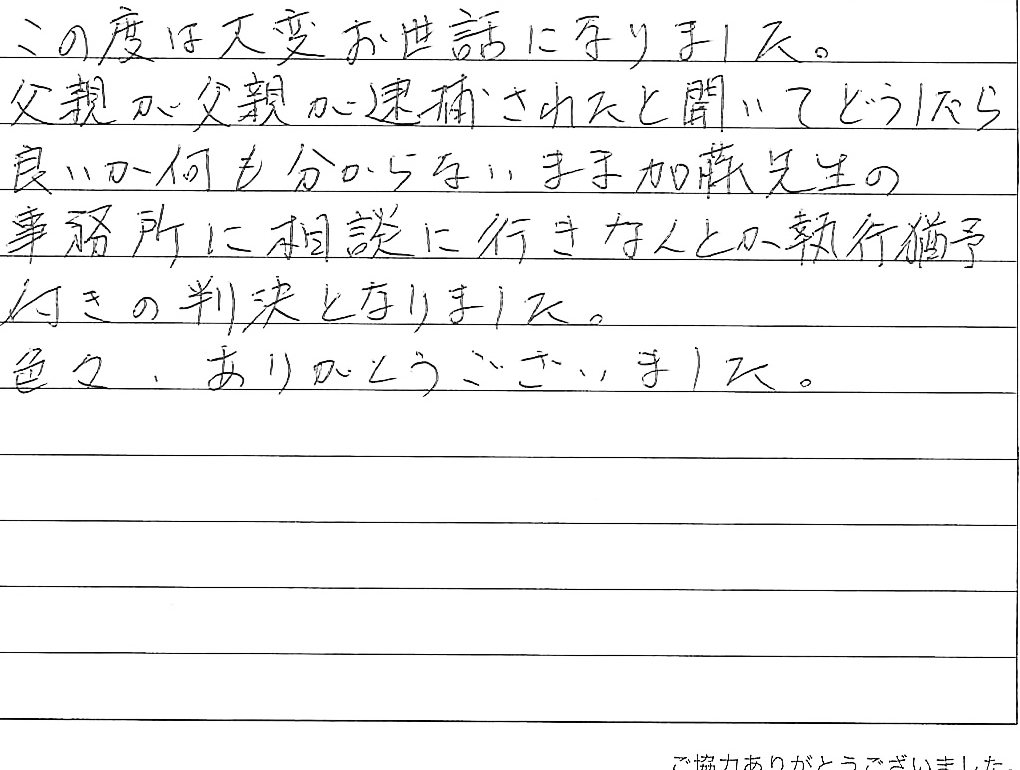 この度は大変お世話になりました。
父親が父親が逮捕されたと聞いてどうしたら
良いか何も分からないまま加藤先生の
事務所に相談に行きなんとか執行猶予
付きの判決となりました。
色々、ありがとうございました。
ご協力ありがとうございました。